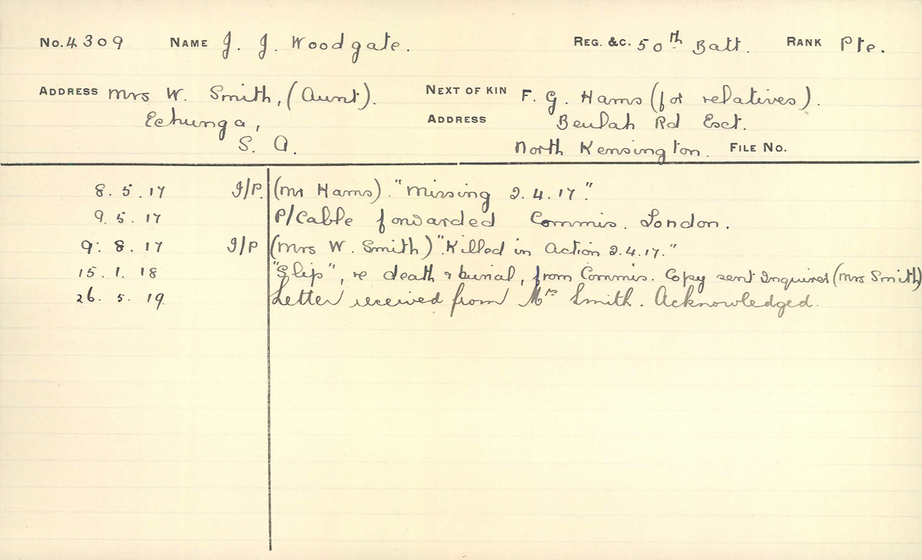 No. 4309 NAME J. J. Woodgate. REG. &C. 50th Batt. RANK Pte.
ADDRESS Mrs W. Smith, (Aunt). NEXT OF KIN F. G. Hams (for relatives).
Echunga, ADDRESS Beulah Rd Esct.
S. A. North Kensington. FILE No.
8. 5. 17 I/P. (Mr Hams). "Missing 2.4.17."
9. 5. 17 P/Cable forwarded Commis. London.
9. 8. 17 I/P (Mrs W. Smith) "Killed in Action 2.4.17."
15. 1. 18 "Slip", re death & burial, from Commis. Copy sent Inquirer (Mrs Smith)
26. 5. 19 Letter received from Mrs Smith. Acknowledged.